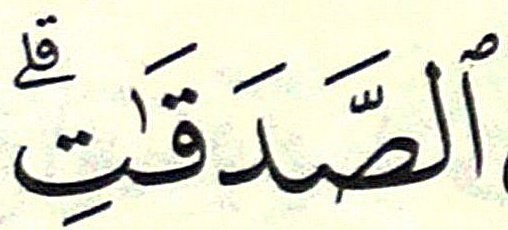 ٱلصَّدَقَـٰتِ ۗ